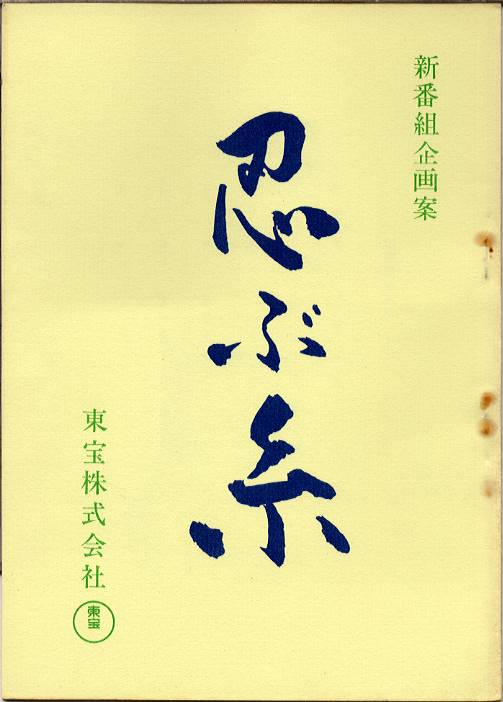 新番組企画案
忍ぶ糸
東宝株式会社
東宝